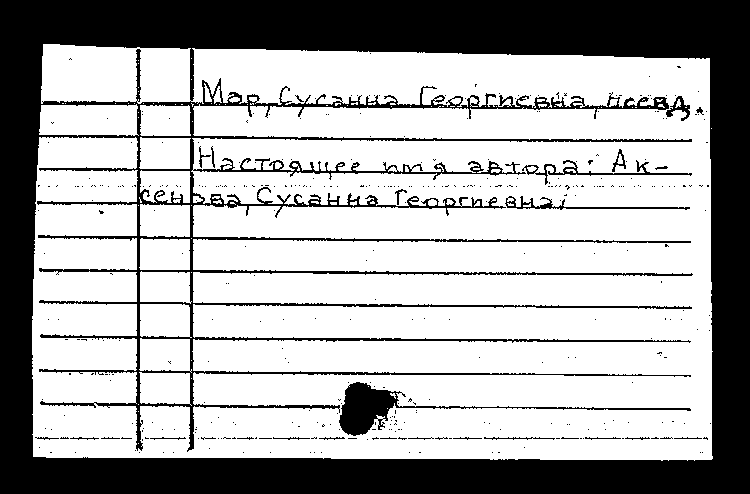 Мар, Сусанна Георгиевна, псевд.
Настоящее имя автора: Ак-
сенова, Сусанна Георгиевна.